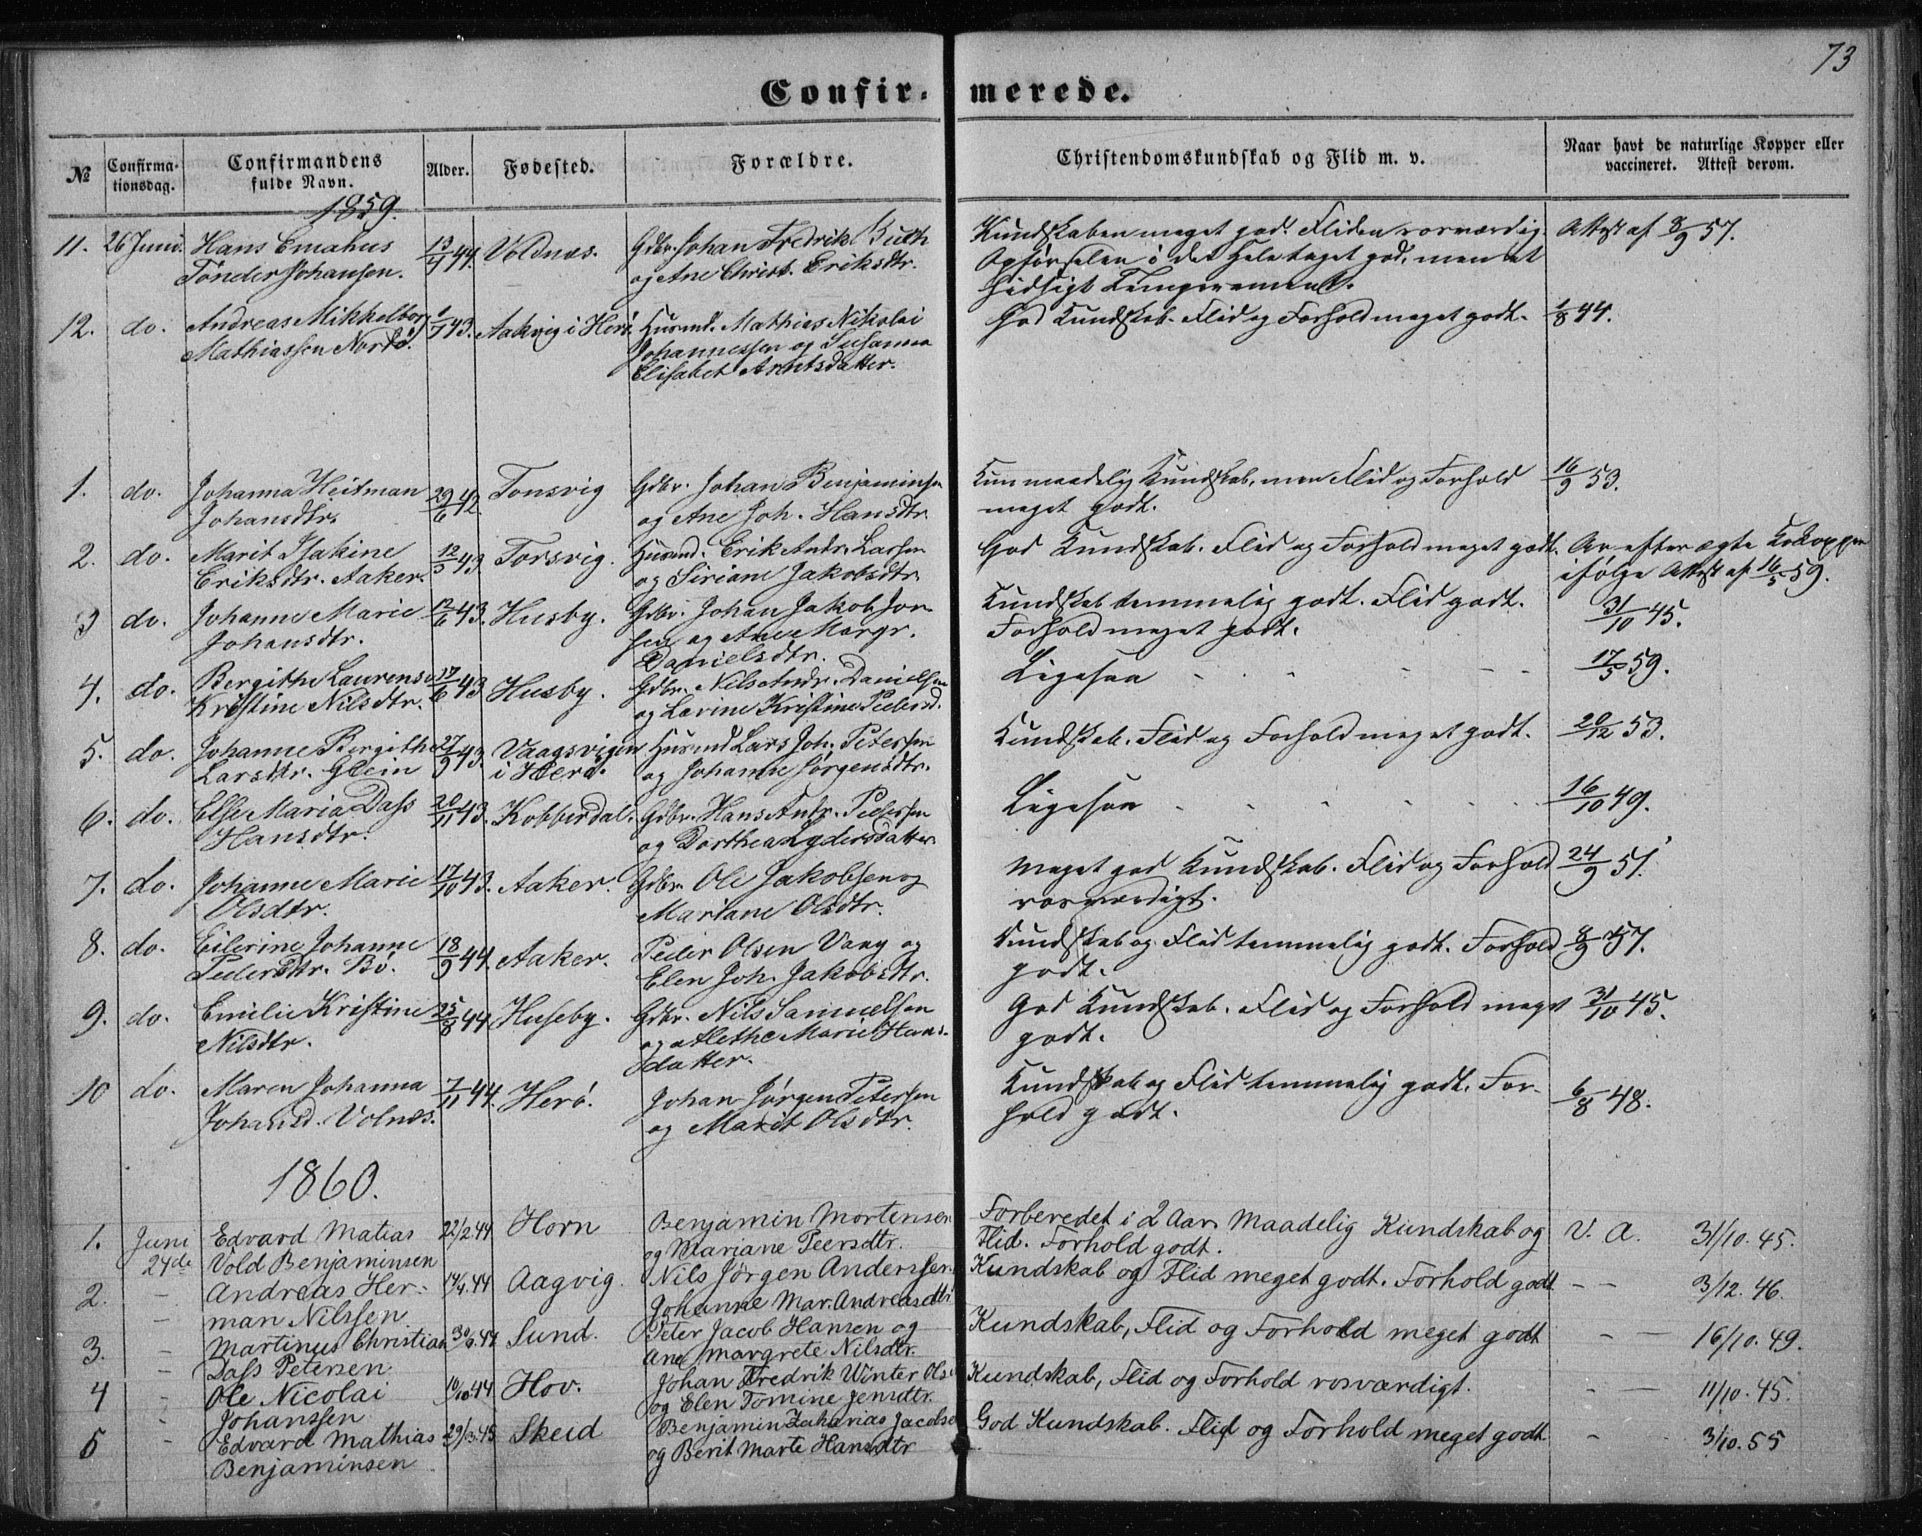 73
Confir- merede.
№ Confirma-tionsdag. Confirmandens fulde Navn. Alder. Fødested. Forældre. Christendomskundskab og Flid m. v. Naar havt de naturlige Kopper eller vaccineret. Attest derom.
1859.
11. 26 Juni. Hans Emahus 13/1 44. Voldnæs. Gdbr. Johan Fredrik Buth Kundskaben meget god. Fliden rosværdig. Attest af 8/9 57.
Tönder Johansen. og Ane Christ. Eriksdtr. Opførselen i det Hele taget god, men et
hidsigt Temperament.
12. do. Andreas Mikkelborg 1/7 43. Aakvig i Herö Husmd. Mathias Nikolai God Kundskab. Flid og Forhold meget godt. 1/8 44.
Mathiassen Nordö. Johannessen og Susanna
Elisabet Arntsdatter.
1. do. Johanna Heitman 29/6 42. Tonsvig Gdbr. Johan Benjaminsen Kun maadelig Kundskab, men Flid og Forhold 16/9 53.
Johansdtr. og Ane Joh. Hansdtr. meget godt.
2. do. Marit Isakine 12/5 43. Torsvig. Husmd. Erik Andr. Larsen God Kundskab. Flid og Forhold meget godt. Ar efter ægte Kokopper
Eriksdtr. Aaker. og Siriane Jakobsdtr. ifølge Attest af 16/5 59.
3 do. Johanne Marie 12/6 43. Husby. Gdbr. Johan Jakob Jor- Kundskab temmelig godt. Flid godt. 31/10 45.
Johansdtr. sen og Ane Margr. Forhold meget godt.
Danielsdtr.
4. do. Bergithe Laurense 17/6 43 Husby. Gdbr. Nils Andr. Danielsen Ligesaa - - - - - 17/5 59.
Kristine Nilsdtr. og Lavine Kristine Pedersd.
5. do. Johanne Bergithe 27/9 43. Vaagsvigen Husmd Lars Joh. Petersen Kundskab. Flid og Forhold meget godt. 20/12 53.
Larsdtr. Glein i Herö. og Johanne Jørgensdtr.
6. do. Else Maria Dass 20/11 43. Kobberdal. Gdbr. Hans Andr. Pedersen Ligesaa - - - - - 16/10 49.
Hansdtr. og Dorthea Lydersdatter
7. do. Johanne Marie 17/10 43. Aaker. Gdbr. Ole Jakobsen og Meget god Kundskab. Flid og Forhold 24/9 51.
Olsdtr. Mariane Olsdtr. rosværdigt.
8. do. Eilerine Johanne 18/9 44. Aaker. Peder Olsen Vaag og Kundskab og Flid temmelig godt. Forhold 8/9 57.
Pedersdtr. Bö. Elen Joh. Jakobsdtr. godt.
9. do. Emilie Kristine 25/3 44. Huseby. Gdbr. Nils Samuelsen God Kundskab. Flid og Forhold meget 31/10 45.
Nilsdtr. og Alethe Marie Hans- godt.
datter.
10 do. Maren Johanna 7/11 44. Herö. Johan Jörgen Petersen Kundskab og Flid temmelig godt. For- 6/8 48.
Johansd. Volnæs. og Marit Olsdtr. hold godt.
1860.
1. Juni Edvard Matias 22/2 44 Horn Benjamin Mortensen Forberedet i 2 Aar. Maadelig Kundskab og V. A. 31/10. 45.
24de Vold Benjaminsen og Mariane Peersdtr. Flid. Forhold godt.
2. - Andreas Her- 14/4. 44 Aagvig. Nils Jørgen Anderssen Kundskab og Flid meget godt. Forhold godt - - 3/12. 46.
- man Nilssen Johanne Mar. Andreasdtr
3. - Martinus Christian 30/6. 44 Sund. Peter Jacob Hansen og Kundskab, Flid og Forhold meget godt - - 16/10. 49.
- Dass Petersen Ane Margrete Nilsdtr.
4 - Ole Nicolai 16/10 44 Hov. Johan Fredrik Winter Ols Kundskab, Flid og Forhold rosværdigt. - - 11/10. 45.
- Johanssen og Elen Tomine Jensdtr.
5 - Edvard Mathias 29/3. 45 Skeid Benjamin Zacharias Jacobse God Kundskab. Flid og Forhold meget godt. - 3/10. 55
Benjaminsen og Berit Marte Hansdtr